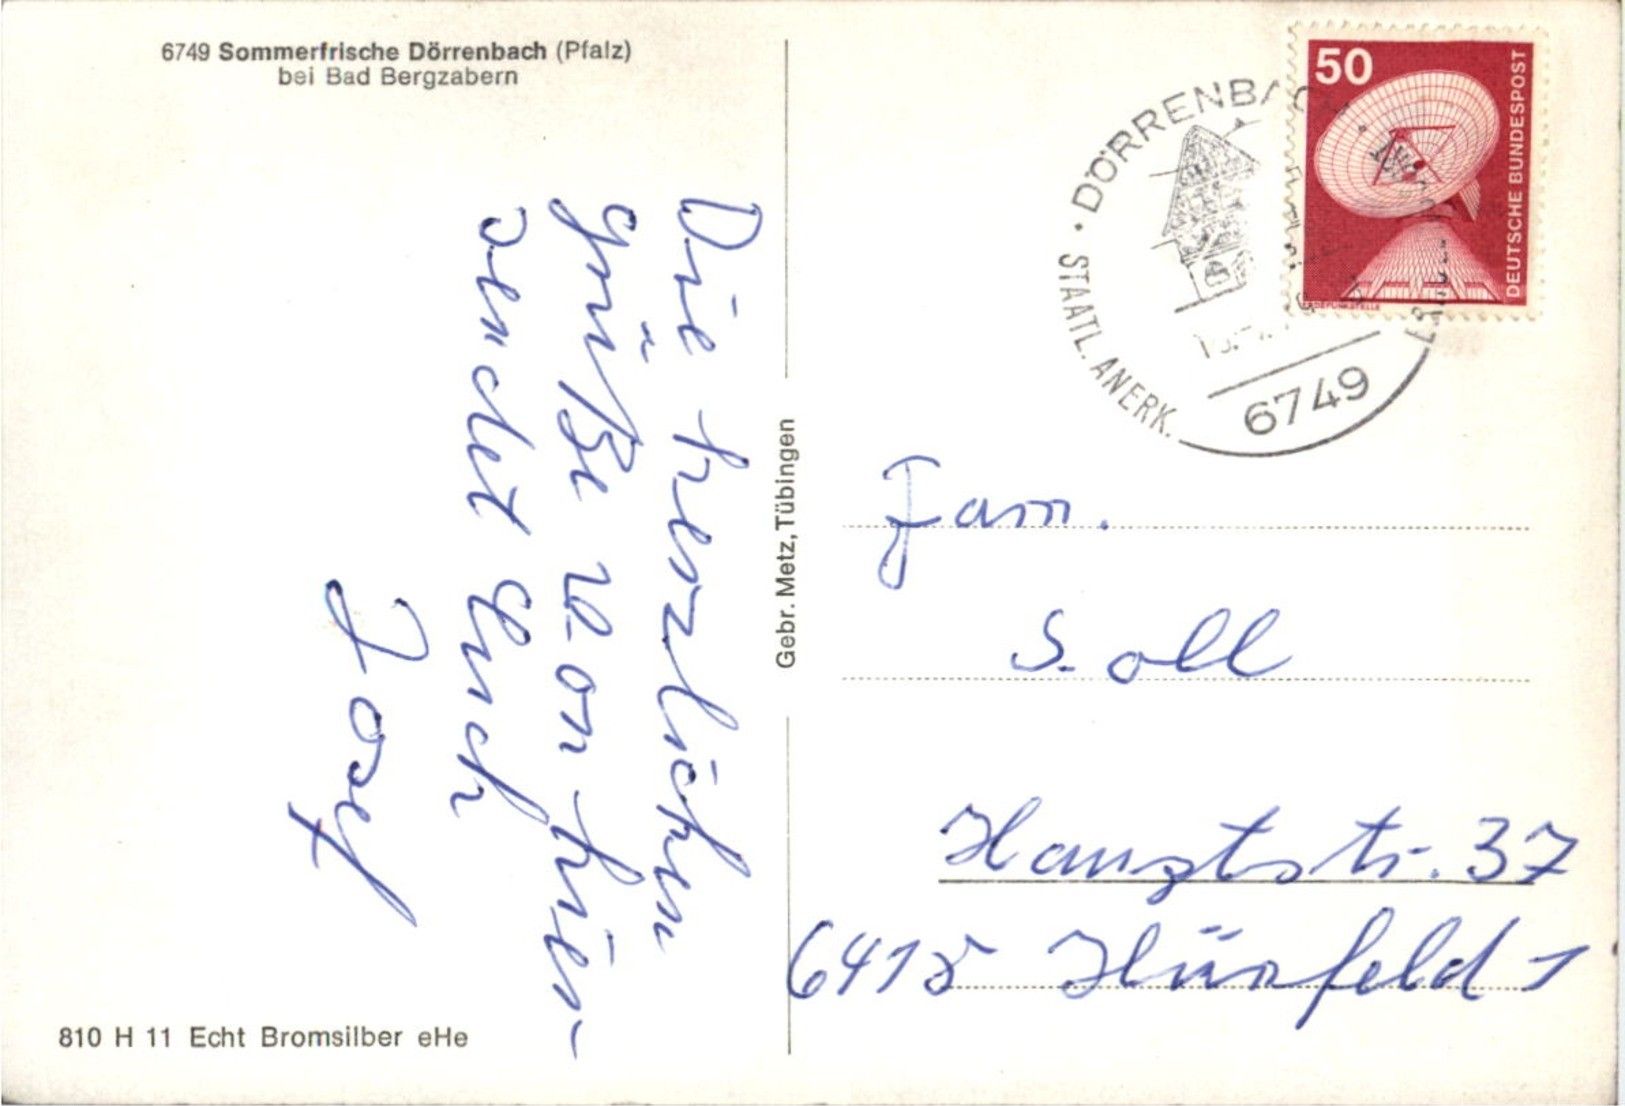 6749 Sommerfrische Dörrenbach (Pfalz)
bei Bad Bergzabern
Die herzlichen
Grüße von hier
sendet Euch
Josef
810 H 11 Echt Bromsilber eHe
Gebr. Metz, Tübingen
50
DEUTSCHE BUNDESPOST
DÖRRENBACH
STAATL. ANERK.
6749
Fam.
Soll
Hauptstr. 37
6415 Hünfeld 1